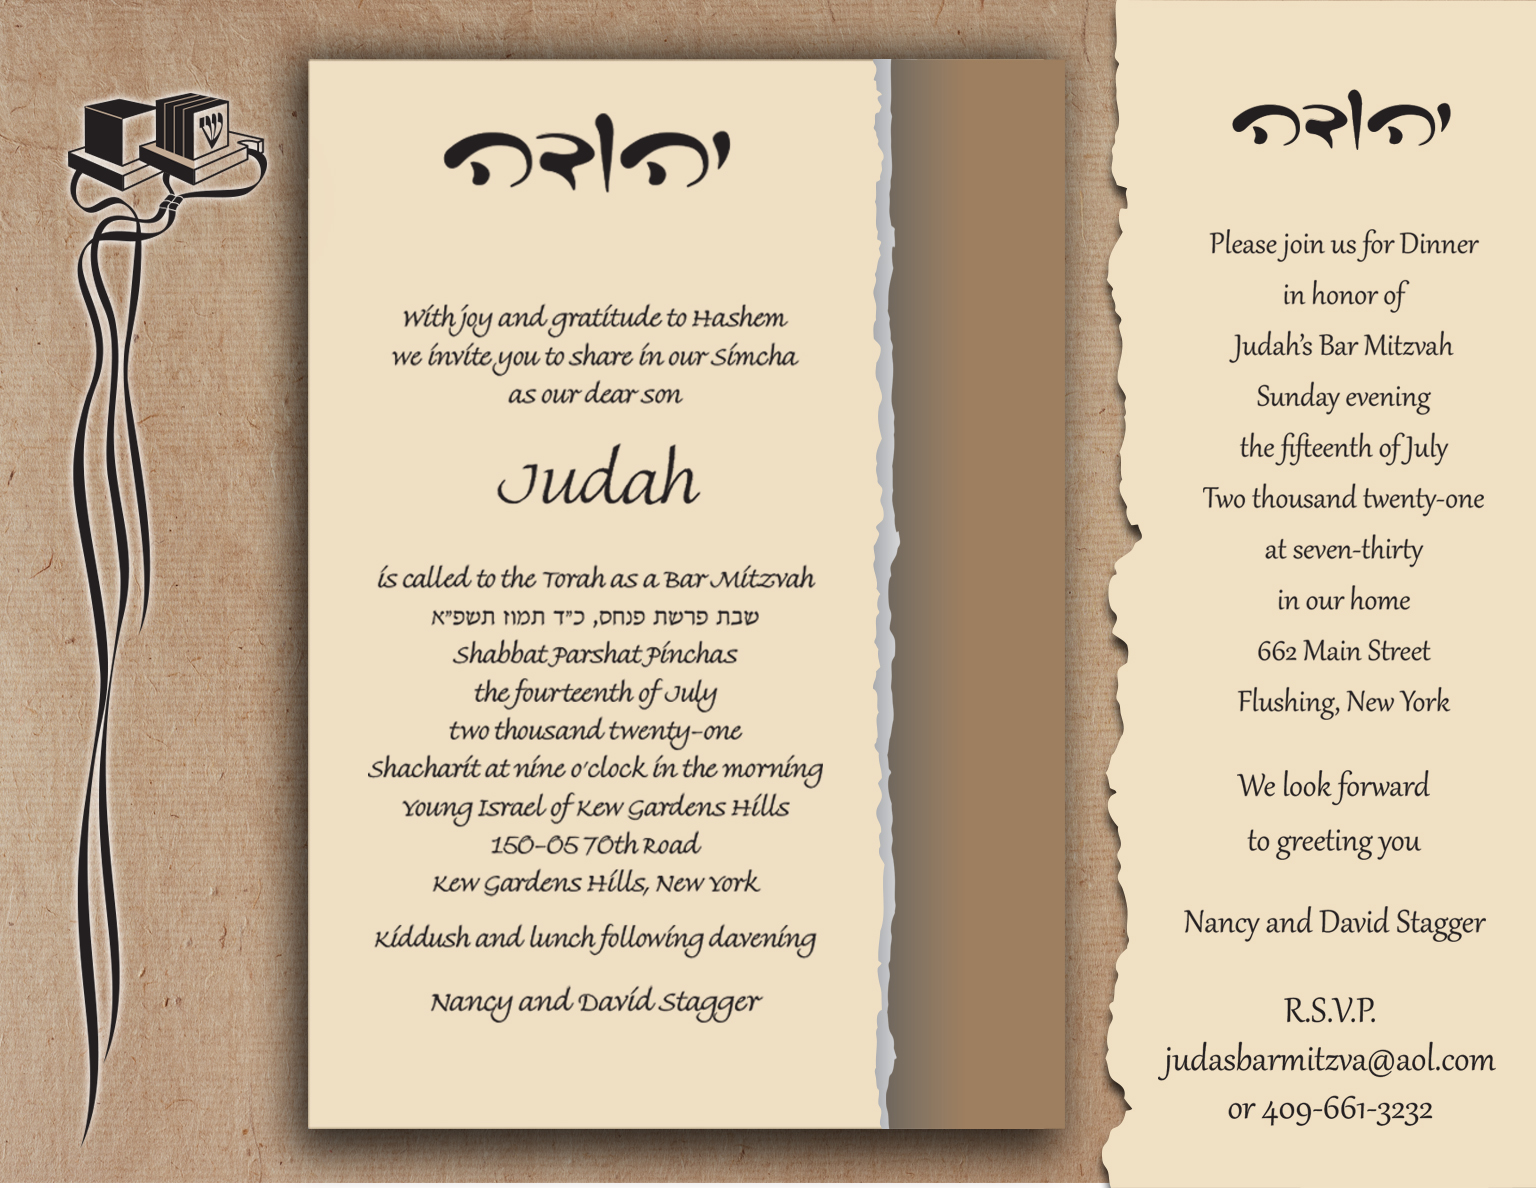 ש
יהודה
With joy and gratitude to Hashem
we invite you to share in our Simcha
as our dear son
Judah
is called to the Torah as a Bar Mitzvah
שבת פרשת פנחס, כ״ד תמוז תשפ״א
Shabbat Parshat Pinchas
the fourteenth of July
two thousand twenty-one
Shacharit at nine o'clock in the morning
Young Israel of Kew Gardens Hills
150-05 70th Road
Kew Gardens Hills, New York
Kiddush and lunch following davening
Nancy and David Stagger
יהודה
Please join us for Dinner
in honor of
Judah's Bar Mitzvah
Sunday evening
the fifteenth of July
Two thousand twenty-one
at seven-thirty
in our home
662 Main Street
Flushing, New York
We look forward
to greeting you
Nancy and David Stagger
R.S.V.P.
judasbarmitzva@aol.com
or 409-661-3232